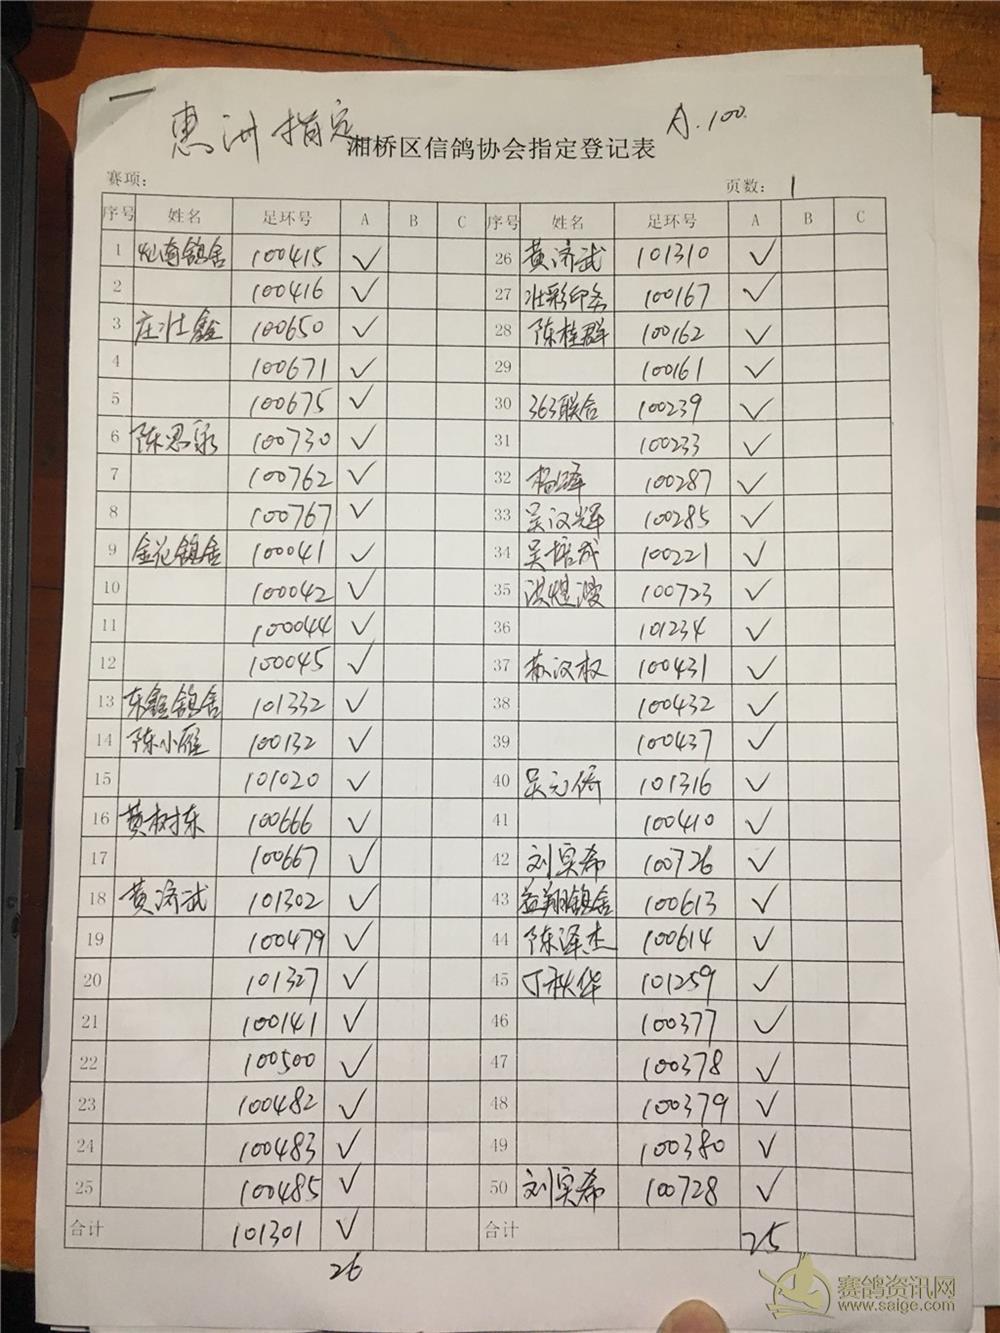 惠洲指定
A.100.
湘桥区信鸽协会指定登记表
赛项： 页数：1
序号 姓名 足环号 A B C 序号 姓名 足环号 A B C
1 鸽舍 100415 ✓ 26 黄济武 101310 ✓
2 100416 ✓ 27 壮彩印务 100167 ✓
3 庄壮鑫 100650 ✓ 28 陈桂群 100162 ✓
4 100671 ✓ 29 100161 ✓
5 100675 ✓ 30 363联合 100239 ✓
6 陈思 100730 ✓ 31 100233 ✓
7 100762 ✓ 32 杨泽 100287 ✓
8 100767 ✓ 33 吴汉辉 100285 ✓
9 金花鸽舍 100041 ✓ 34 吴培成 100221 ✓
10 100042 ✓ 35 洪煜 100723 ✓
11 100044 ✓ 36 101234 ✓
12 100045 ✓ 37 汉权 100431 ✓
13 东鑫鸽舍 101332 ✓ 38 100432 ✓
14 陈小雁 100132 ✓ 39 100437 ✓
15 101020 ✓ 40 吴元侨 101316 ✓
16 黄树东 100666 ✓ 41 100410 ✓
17 100667 ✓ 42 刘实希 100726 ✓
18 黄济武 101302 ✓ 43 益翔鸽舍 100613 ✓
19 100479 ✓ 44 陈泽杰 100614 ✓
20 101327 ✓ 45 丁秋华 101259 ✓
21 100141 ✓ 46 100377 ✓
22 100500 ✓ 47 100378 ✓
23 100482 ✓ 48 100379 ✓
24 100483 ✓ 49 100380 ✓
25 100485 ✓ 50 刘实希 100728 ✓
合计 101301 ✓ 合计 25
26
赛鸽资讯网
www.saige.com